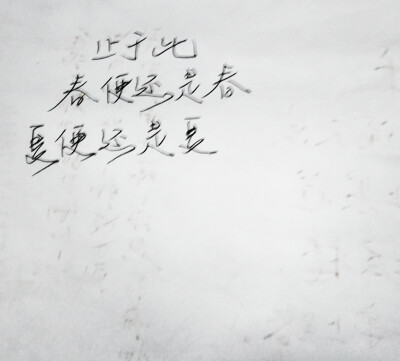 止于此
春便还是春
夏便还是夏